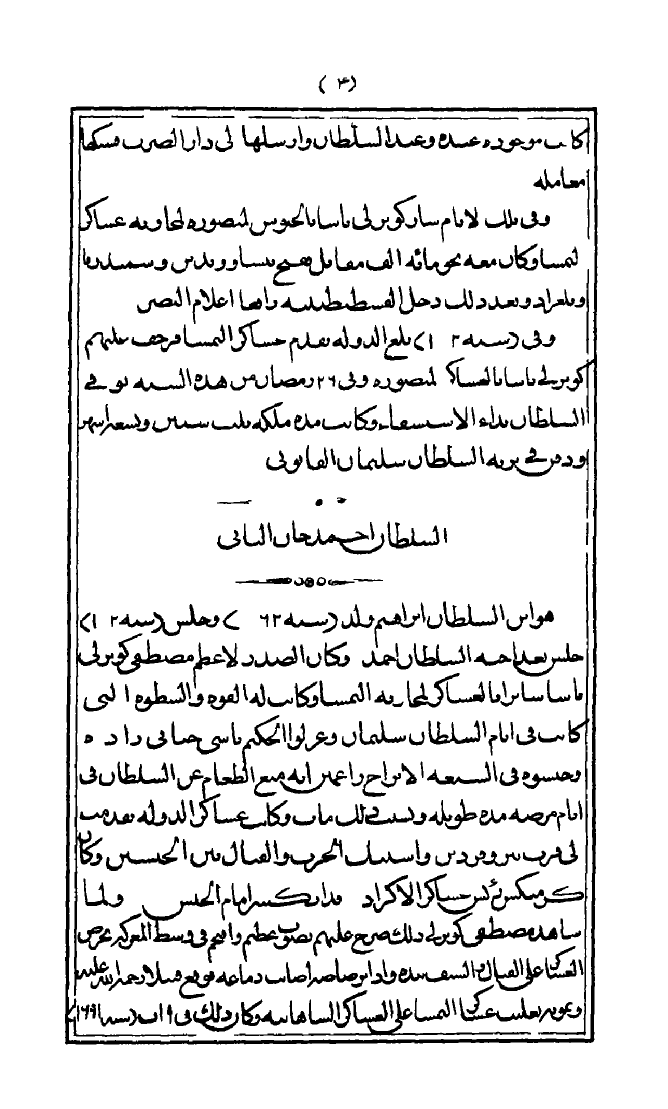 (٣)
كانت موجوده عنده وعند السلطان وارسلها لى دار الضرب فسكها
معامله
وفى تلك لايام سار كوبرلى باشا بالجيوش لمنصوره لمحاربه عساكر
لنمسا وكان معه نحو مائه الف مقاتل ففتح نيسا وويدين وسمندريا
وبلغراد وبعد ذلك دخل القسطنطينيه رافعا اعلام النصر
وفى (سنه ١٢) بلغ الدوله تقدم عساكر النمسا فزحف عليهم
كوبرلى باشا بالعساكر لمنصوره وفى ٢٦ رمضان من هذه السنه توفى
السلطان بداء الاستسقاء وكانت مده ملكه ثلث سنين وتسعه اشهر
ودفن فى تربه السلطان سليمان القانونى
السلطان احمد خان الثانى
هو ابن السلطان ابراهيم ولد (سنه ٦٢) وجلس (سنه ١٢)
جلس بعد اخيه السلطان احمد وكان الصدر لاعظم مصطفى كوبرلى
باشا سائرا بالعساكر لمحاربه النمسا وكانت له القوه والسطوه التى
كانت فى ايام السلطان سليمان وعزلوا الحكيم باشى حياتى زاده
وحبسوه فى السبعه الابراج زاعمين انه منع الطعام عن السلطان فى
ايام مرضه مده طويله وبسبب ذلك مات وكانت عساكر الدوله تقدمت
لى قرب واشتبك الحرب والقتال بين الجيشين وكان
رئيس عساكر الاكراد قد انكسر امام الجيش ولما
شاهد مصطفى كوبرلى ذلك صرخ عليهم بصوت عظيم واقتحم فى وسط المعركه يحرض
العسكر على القتال والسيف بيده واذا برصاصه اصابت دماغه فوقع قتيلا رحمه الله عليه
وبموته تغلبت عسكر النمسا على العساكر الشاهانيه وكان ذلك فى ١٩ اب (سنه ١٦٩١)